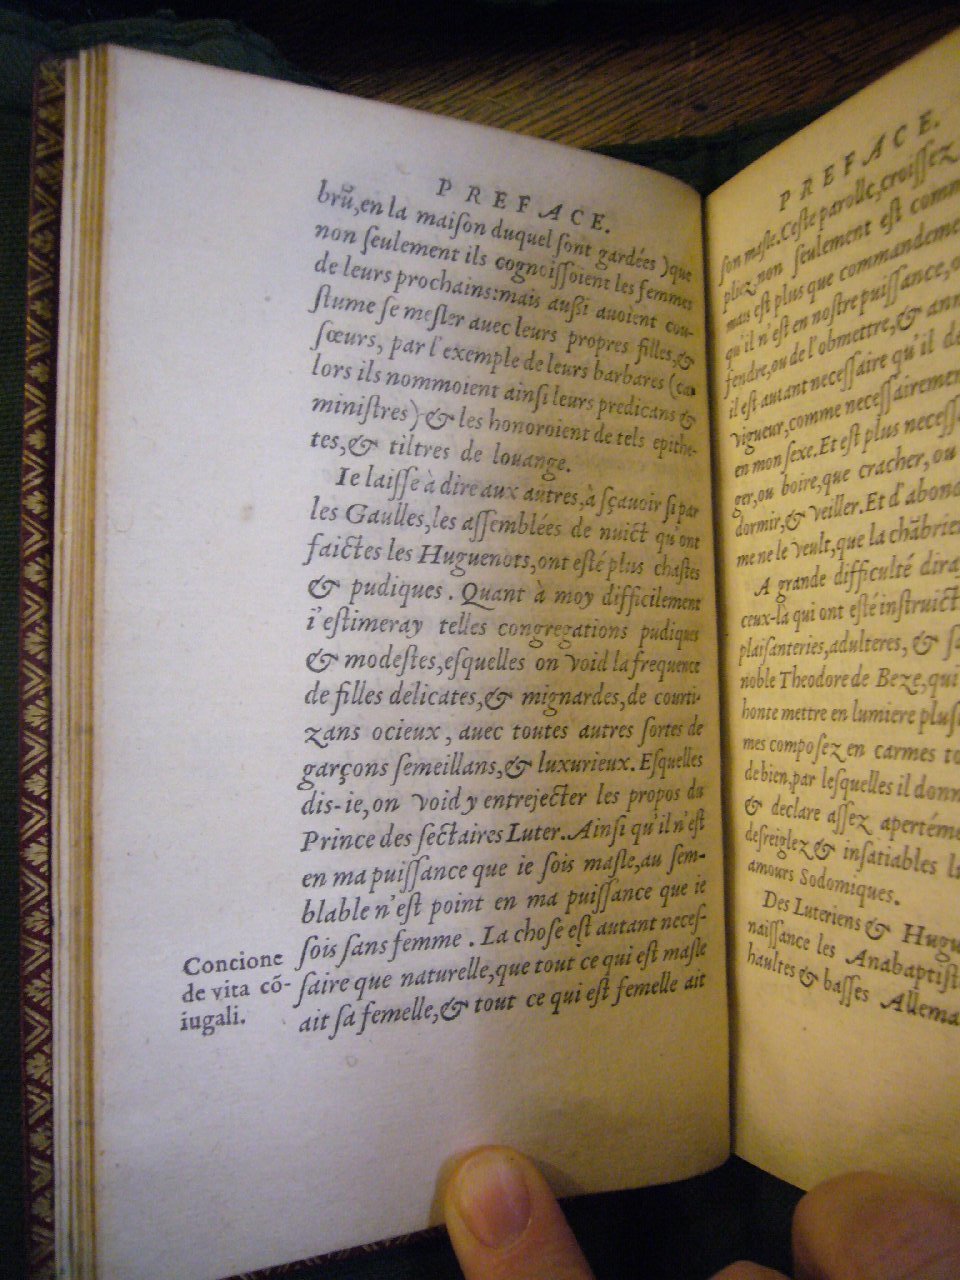 PREFACE.
brũ, en la maison duquel sont gardées) que
non seulement ils cognoissoient les femmes
de leurs prochains: mais aussi avoient cou-
stume se mesler avec leurs propres filles, &
sœurs, par l'exemple de leurs barbares (ca
lors ils nommoient ainsi leurs predicans &
ministres) & les honoroient de tels epithe-
tes, & tiltres de louange.
Ie laisse à dire aux autres, à sçavoir si par
les Gaulles, les assemblées de nuict qu'ont
faictes les Huguenots, ont esté plus chastes
& pudiques. Quant à moy difficilement
i'estimeray telles congregations pudiques
& modestes, esquelles on void la frequence
de filles delicates, & mignardes, de courti-
zans ocieux, avec toutes autres sortes de
garçons semeillans, & luxurieux. Esquelles
dis-ie, on void y entrejecter les propos du
Prince des sectaires Luter. Ainsi qu'il n'est
en ma puissance que ie sois masle, au sem-
blable n'est point en ma puissance que ie
sois sans femme. La chose est autant neces-
saire que naturelle, que tout ce qui est masle
ait sa femelle, & tout ce qui est femelle ait
Concione
de vita cõ-
iugali.
PREFACE.
son masle. Ceste parolle, croissez
pliez, non seulement est comm
mais est plus que commandeme
qu'il n'est en nostre puissance, o
fendre, ou de l'obmettre, & ann
il est autant necessaire qu'il de
vigueur, comme necessairemen
en mon sexe. Et est plus necess
ger, ou boire, que cracher, ou
dormir, & veiller. Et d'abond
me ne le veult, que la chãbrier
A grande difficulté diray
ceux-la qui ont esté instruict
plaisanteries, adulteres, & sa
noble Theodore de Beze, qui
honte mettre en lumiere plusi
mes composez en carmes to
de bien, par lesquelles il donn
& declare assez apertéme
desreiglez & insatiables lu
amours Sodomiques.
Des Luteriens & Hugu
naissance les Anabaptist
haultes & basses Allema